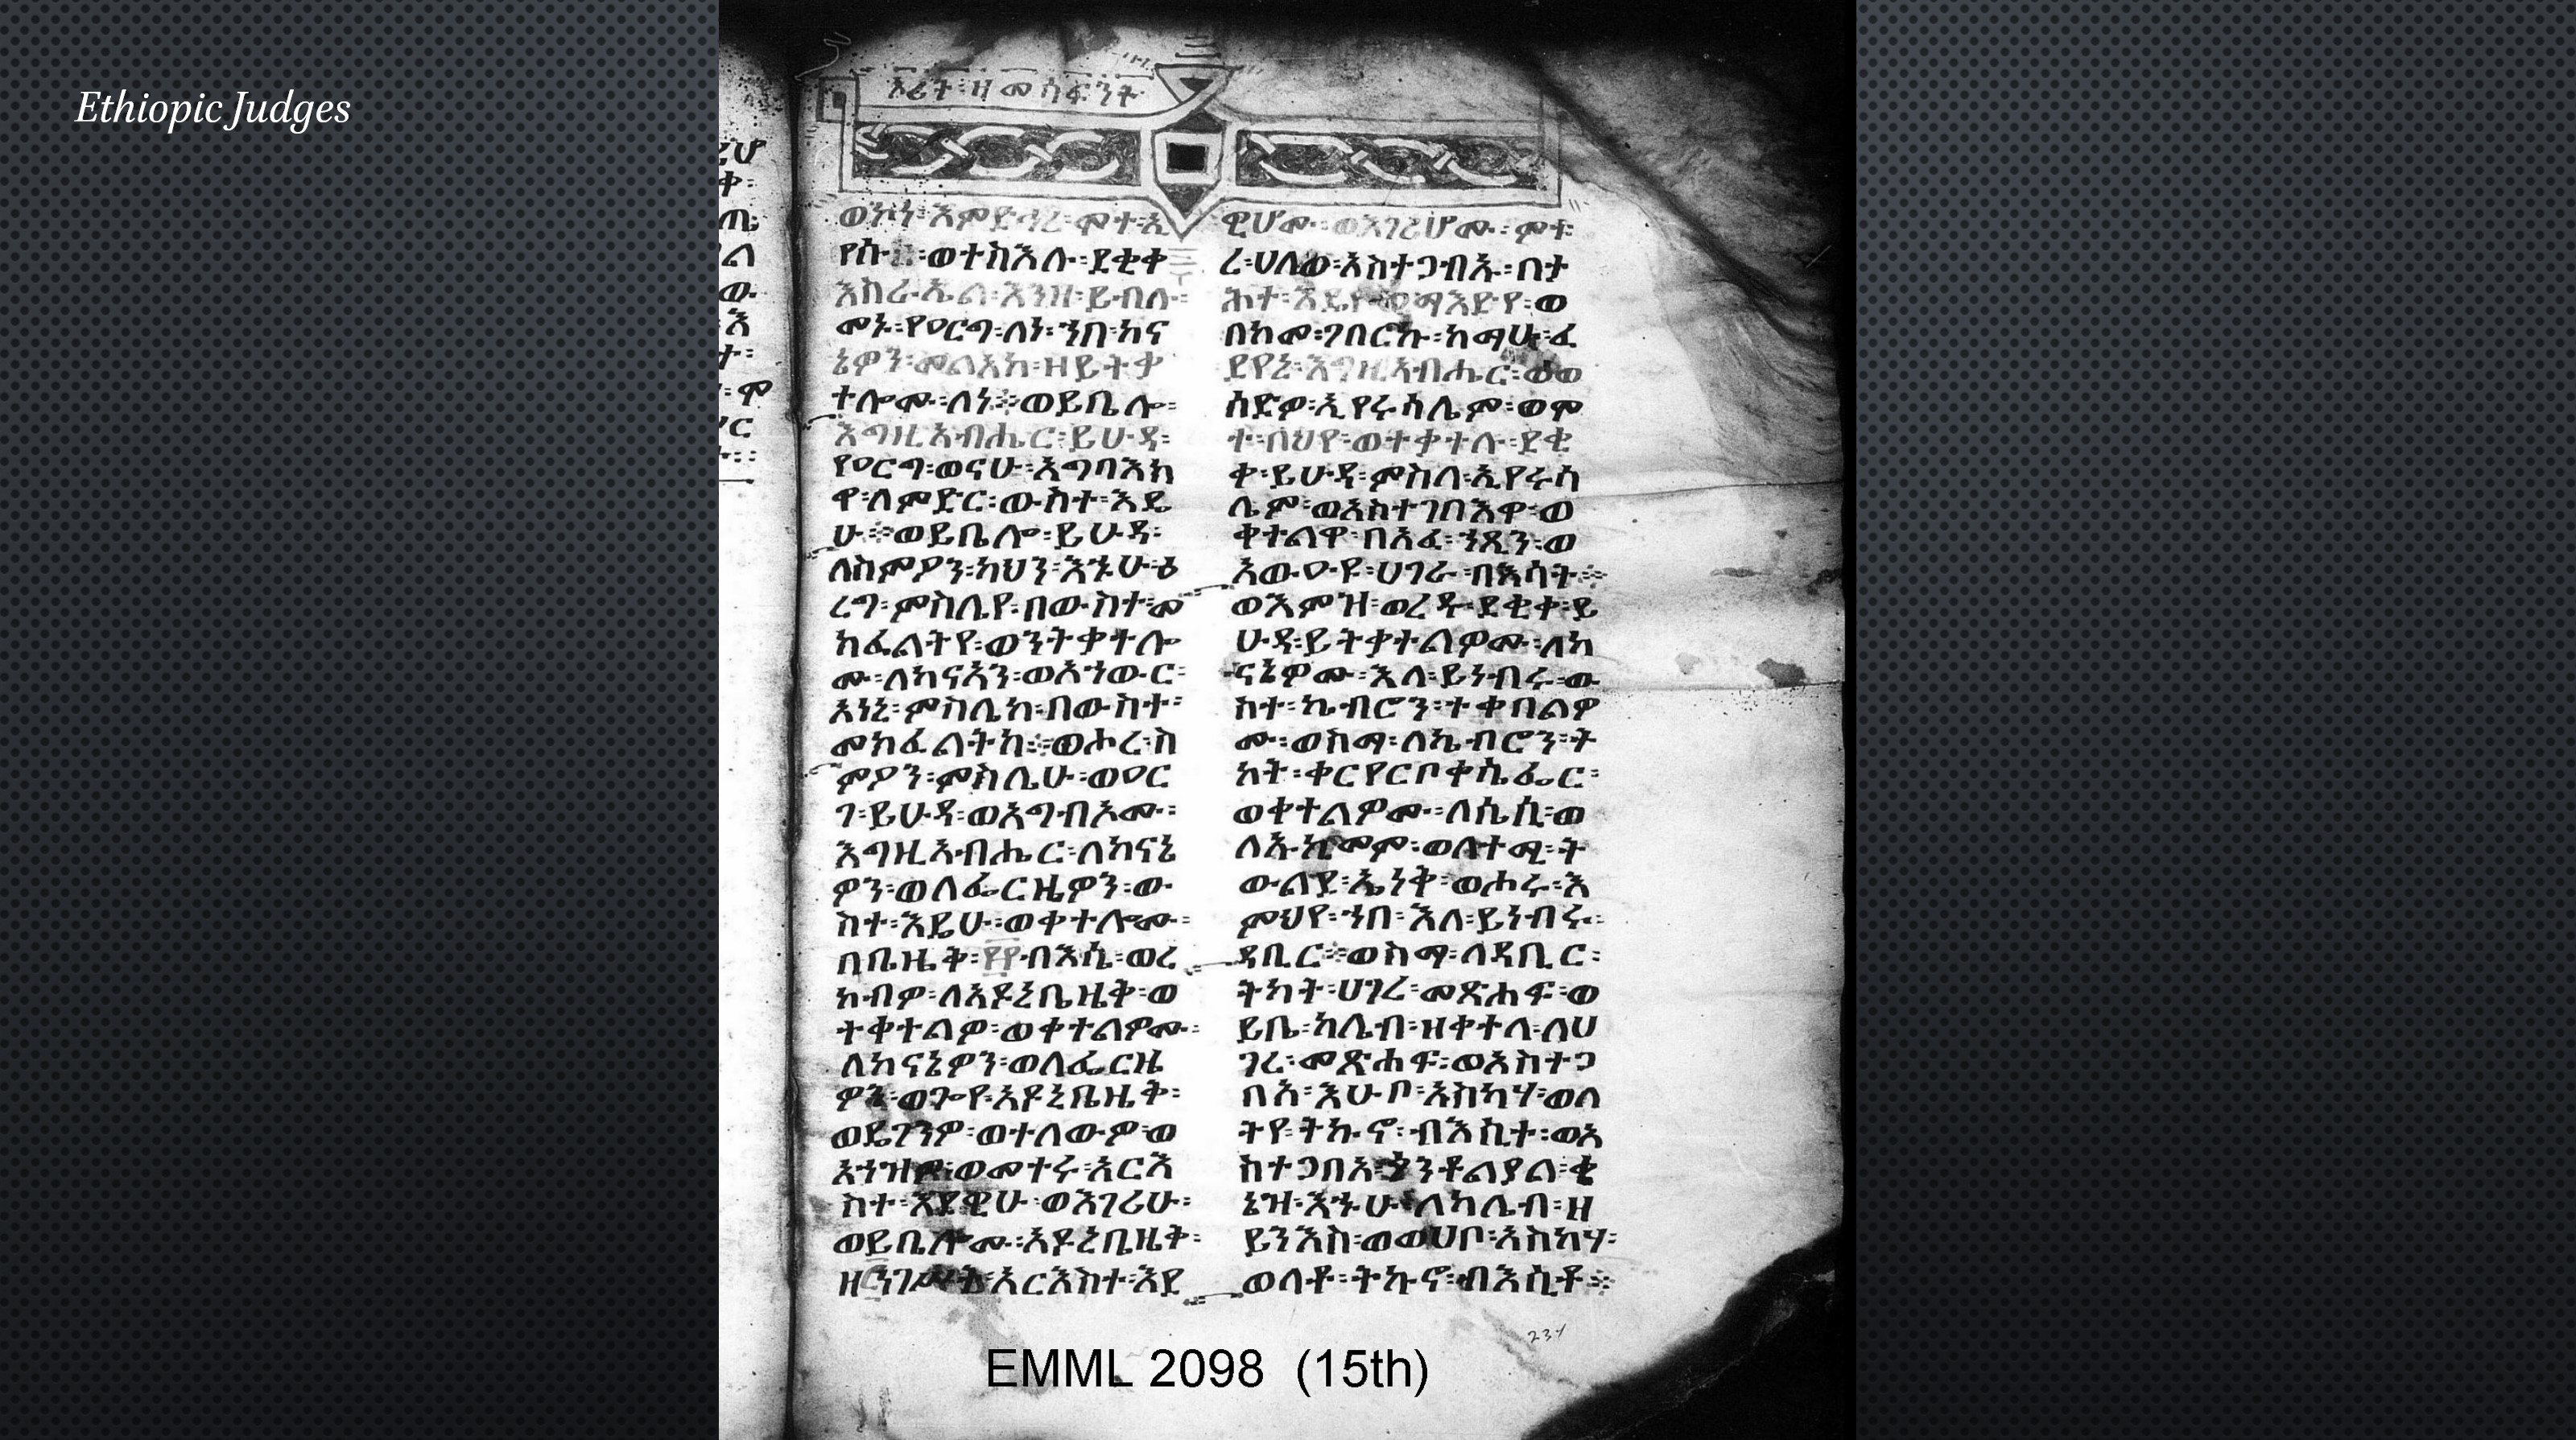 Ethiopic Judges
ኦሪት፡ዘመሳፍንት
ወኮነ፡እምድኅረ፡ሞተ፡ኢ
የሱ፡ወተስእሉ፡ደቂቀ
እስራኤል፡እንዘ፡ይብሉ፡
መኑ፡የዐርግ፡ለነ፡ኀበ፡ከና
ኔዎን፡መልአክ፡ዘይትቃ
ተሎሙ፡ለነ፨ወይቤሎ፡
እግዚአብሔር፡ይሁዳ፡
የዐርግ፡ወናሁ፡አግባእክ
ዋ፡ለምድር፡ውስተ፡እዴ
ሁ፨ወይቤሎ፡ይሁዳ፡
ለስምዖን፡ካህን፡እኁሁ፡ዕ
ረግ፡ምስሌየ፡በውስተ፡መ
ክፈልትየ፡ወንትቃተሎ
ሙ፡ለካናአን፡ወአኀውር፡
አነኒ፡ምስሌከ፡በውስተ፡
መክፈልትከ፨ወሖረ፡ስ
ምዖን፡ምስሌሁ፡ወዐር
ገ፡ይሁዳ፡ወአግብኦሙ፡
እግዚአብሔር፡ለካናኔ
ዎን፡ወለፌርዜዎን፡ው
ስተ፡እዴሁ፡ወቀተሎሙ፡
በቤዜቅ፡፻፻ብእሴ፡ወረ
ከብዎ፡ለአዶኒቤዜቅ፡ወ
ተቀተልዎ፡ወቀተልዎሙ፡
ለካናኔዎን፡ወለፌርዜ
ዎን፡ወጐየ፡አዶኒቤዜቅ፡
ወዴገንዎ፡ወተለውዎ፡ወ
አኀዝዎ፡ወመተሩ፡አርእ
ስተ፡እደዊሁ፡ወእገሪሁ፡
ወይቤሎሙ፡አዶኒቤዜቅ፡
አርእስተ፡እደ
ዊሆሙ፡ወእገሪሆሙ፡ምቱ
ረ፡ሀለው፡አስተጋብኡ፡በታ
ሕተ፡ማእድየ፡ወ
በከመ፡ገበርኩ፡ከማሁ፡ፈ
ደየኒ፡እግዚአብሔር፡ወወ
ሰድዎ፡ኢየሩሳሌም፡ወሞ
ተ፡በህየ፡ወተቃተሉ፡ደቂ
ቀ፡ይሁዳ፡ምስለ፡ኢየሩሳ
ሌም፡ወአስተገበእዋ፡ወ
ቀተልዋ፡በአፈ፡ኀጺን፡ወ
አውዐዩ፡ሀገራ፡በእሳት፨
ወእምዝ፡ወረዱ፡ደቂቀ፡ይ
ሁዳ፡ይትቃተልዎሙ፡ለከ
ናኔዎሙ፡እለ፡ይነብሩ፡ው
ስተ፡ኬብሮን፡ተቀበልዎ
ሙ፡ወስማ፡ለኬብሮን፡ት
ካት፡ቀርየርቦቀሴፌር፡
ወቀተልዎሙ፡ለሴሲ፡ወ
ለአኪመም፡ወለተሚ፡ት
ውልደ፡ኤነቅ፡ወሖሩ፡እ
ምህየ፡ኀበ፡እለ፡ይነብሩ፡
ዳቤር፨ወስማ፡ለዳቤር፡
ትካት፡ሀገረ፡መጽሐፍ፡ወ
ይቤ፡ካሌብ፡ዘቀተላ፡ለሀ
ገረ፡መጽሐፍ፡ወአስተጋ
በአ፡እሁቦ፡አስካሃ፡ወለ
ትየ፡ትኩኖ፡ብእሲተ፡ወአ
ስተጋበአ፡ጎንቶልያል፡ቄ
ኔዝ፡እኁሁ፡ለካሌብ፡ዘ
ይንእስ፡ወወሀቦ፡አስካሃ፡
ወለቶ፡ትኩኖ፡ብእሲቶ፨
EMML 2098 (15th)